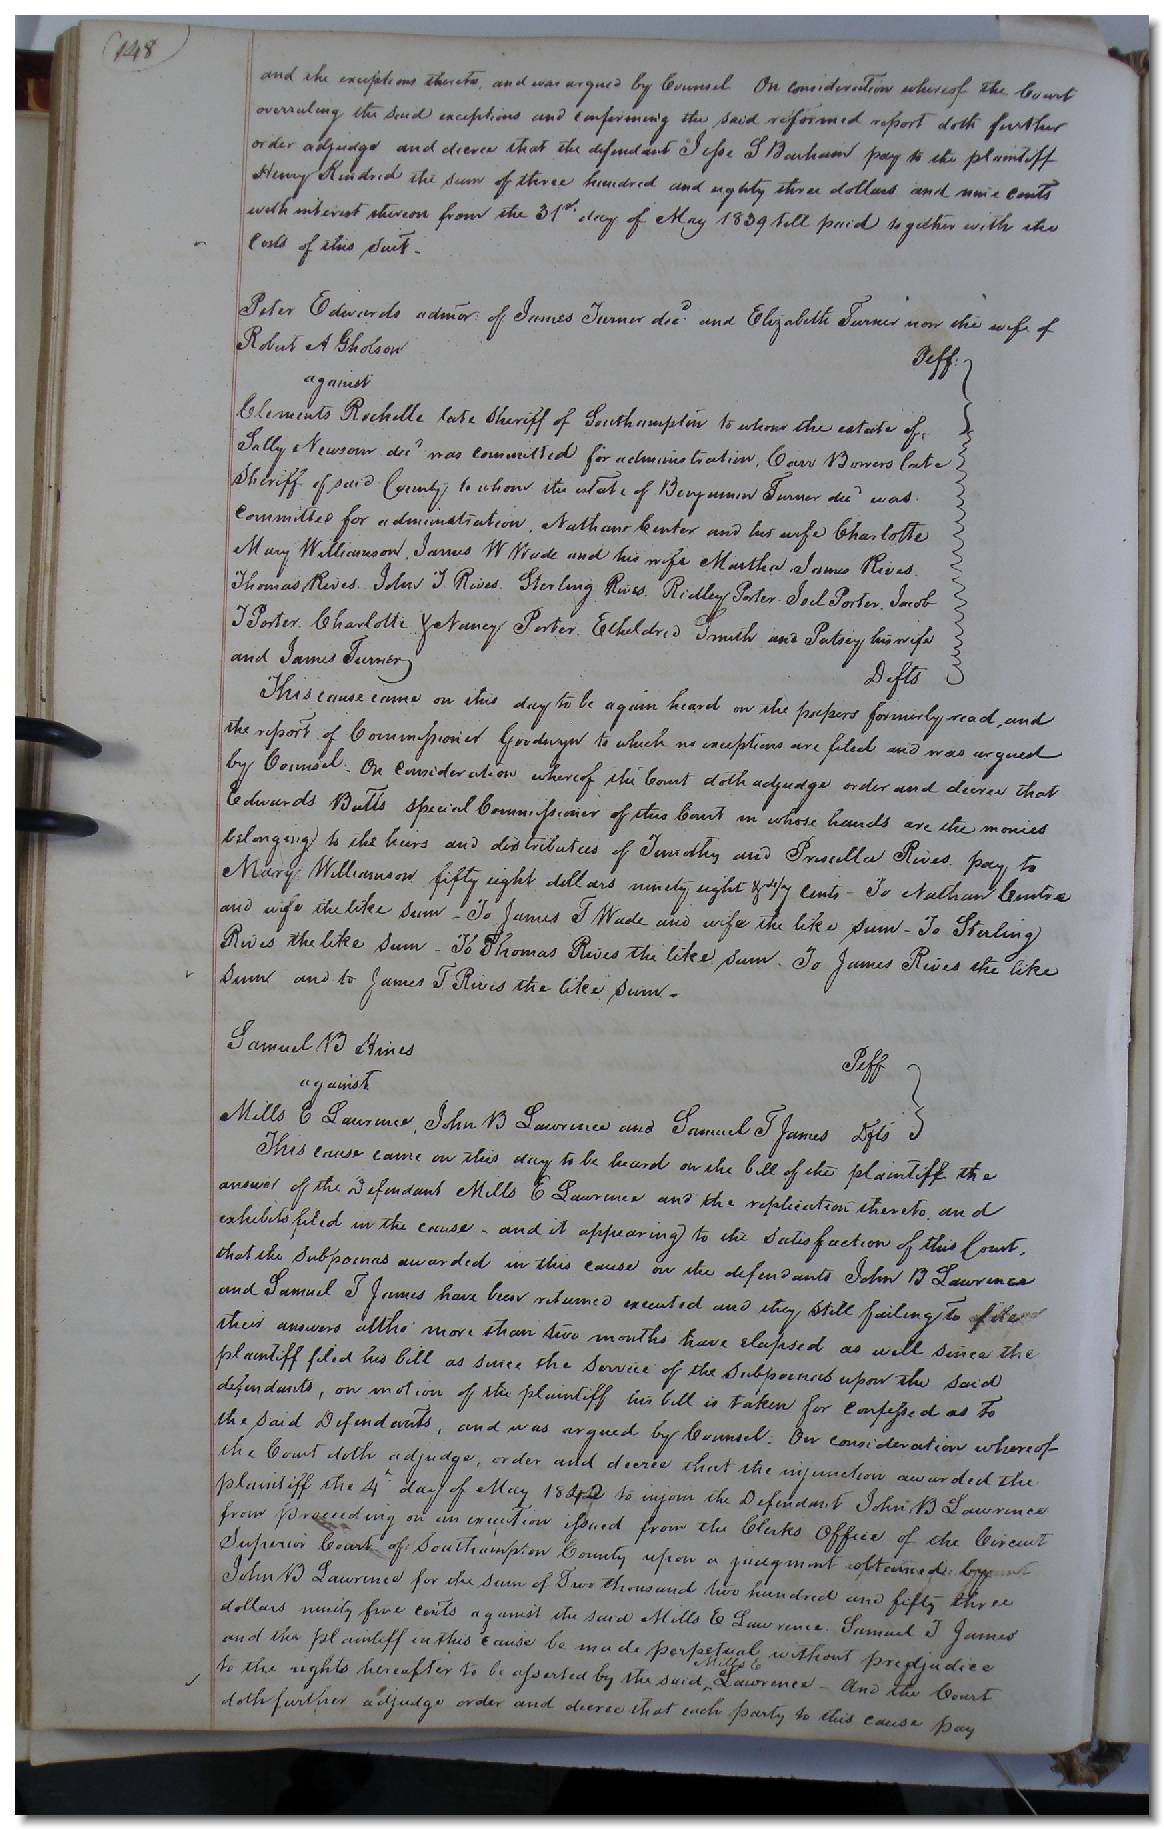 148
and the exceptions thereto, and was argued by Counsel On consideration whereof the Court
overruling the said exceptions and confirming the said reformed report doth further
order adjudge and decree that the defendant Jesse S Barham pay to the plaintiff
Henry Kindred the sum of three hundred and eighty three dollars and nine cents
with interest thereon from the 31st day of May 1839 till paid together with the
Costs of this suit.
Peter Edwards admor. of James Turner decd. and Elizabeth Turner now the wife of
Robert A Gholson Plff.
against
Clements Rochelle late Sheriff of Southampton to whom the estate of
Sally Newsom decd was committed for administration, Carr Bowers late
Sheriff of said County, to whom the estate of Benjamin Turner decd was
Committed for administration, Nathan Center and his wife Charlotte
Mary Williamson, James W Wade and his wife Martha James Rives.
Thomas Rives. John T Rives. Sterling Rives. Ridley Porter. Joel Porter. Jacob
T Porter. Charlotte & Nancy Porter. Etheldred Smith and Patsey his wife
and James Turner Defts
This cause came on this day to be again heard on the papers formerly read, and
the report of Commissioner Goodwyn to which no exceptions are filed and was argued
by Counsel. On consideration whereof the Court doth adjudge order and decree that
Edwards Butts special Commissioner of this Court in whose hands are the monies
belonging to the heirs and distributees of Timothy and Priscilla Rives. pay to
Mary Williamson fifty eight dollars ninety eight cents - To Nathan Centre
and wife the like sum - To James T Wade and wife the like sum - To Sterling
Rives the like sum - To Thomas Rives the like sum. To James Rives the like
Sum and to James T Rives the like sum.
Samuel B Hines Plff
against
Mills E Lawrence, John B Lawrence and Samuel T James Dfts
This cause came on this day to be heard on the bill of the plaintiff the
answer of the Defendant Mills E Lawrence and the replication thereto, and
exhibits filed in the cause - and it appearing to the satisfaction of this Court,
that the subpoenas awarded in this cause on the defendants John B Lawrence
and Samuel T James have been returned executed and they still failing to file
their answers altho' more than two months have elapsed as well since the
plaintiff filed his bill as since the service of the subpoenas upon the said
defendants, on motion of the plaintiff his bill is taken for confessed as to
the said Defendants, and was argued by Counsel. On consideration whereof
the Court doth adjudge, order and decree that the injunction awarded the
plaintiff the 4th day of May 1842 to injoin the Defendant John B Lawrence
from proceeding on an execution issued from the Clerks Office of the Circuit
Superior Court of Southampton County upon a judgment obtained by
John B Lawrence for the sum of Two thousand two hundred and fifty three
dollars ninety five cents against the said Mills E Lawrence. Samuel T James
and the plaintiff in this cause be made perpetual without predjudice
to the rights hereafter to be asserted by the said Mills E Lawrence - And the Court
doth further adjudge order and decree that each party to this cause pay